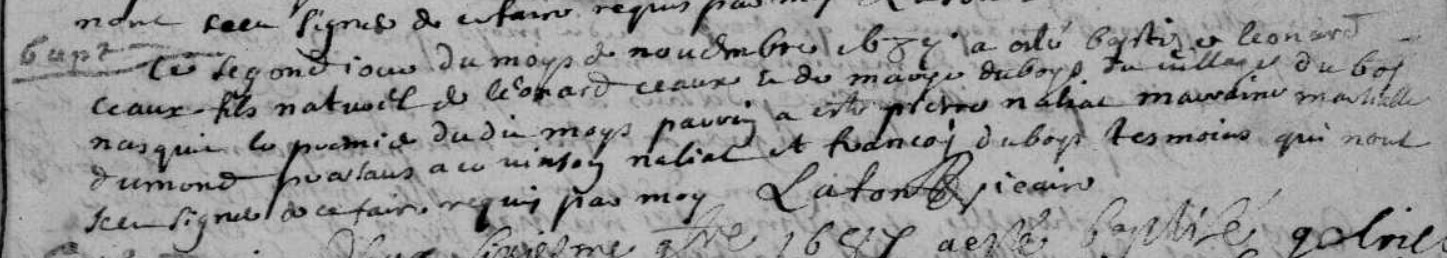 nont sceu signer de ce faire requis par moy
bapt
le segond jour du moys de novembre a esté baptizé leonard
ceaux fils naturel de leonard ceaux et de marye duboys du village du boy
nasqui le premier dudit moys parrin a esté pierre naliat marraine martialle
dumond presans a ce vinson naliat et francoy duboys tesmoins qui nont
sceu signer de ce faire requis par moy Laton vicaire
1687 a esté baptisé